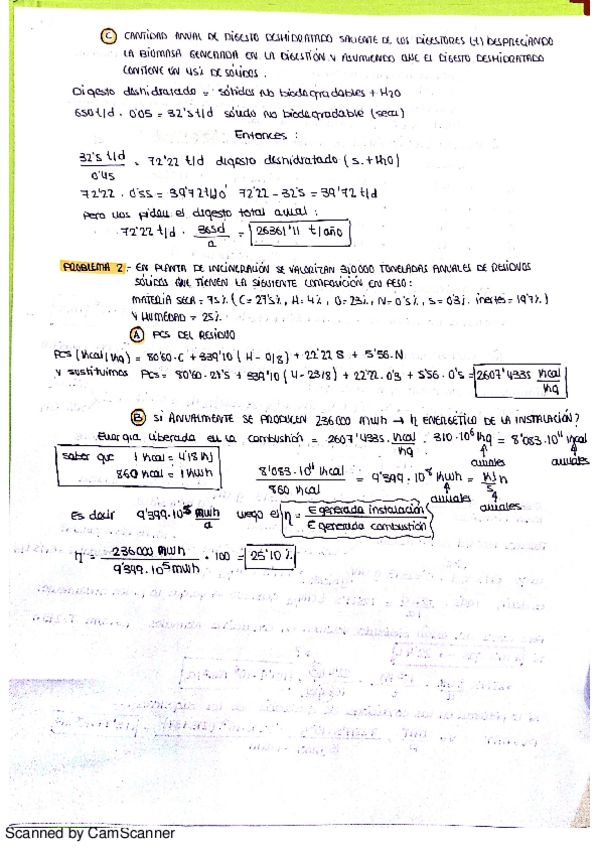 C CANTIDAD ANUAL DE DIGESTO DESHIDRATADO SALIENTE DE LOS DIGESTORES (t) DESPRECIANDO
LA BIOMASA GENERADA EN LA DIGESTIÓN Y ASUMIENDO QUE EL DIGESTO DESHIDRATADO
CONTIENE UN 45% DE SÓLIDOS.
Digesto deshidratado = sólidos no biodegradables + H2O
650 t/d · 0'05 = 32'5 t/d sólido no biodegradable (seca)
Entonces:
32'5 t/d / 0'45 = 72'22 t/d digesto deshidratado (s. + H2O)
72'22 · 0'55 = 39'72 t/d o 72'22 - 32'5 = 39'72 t/d
Pero nos piden el digesto total anual:
72'22 t/d · 365d / a = 26361'11 t/año
PROBLEMA 2.- EN PLANTA DE INCINERACIÓN SE VALORIZAN 310000 TONELADAS ANUALES DE RESIDUOS
SÓLIDOS QUE TIENEN LA SIGUIENTE COMPOSICIÓN EN PESO:
MATERIA SECA = 75% (C = 27'5%, H = 4%, O = 23%, N = 0'5%, S = 0'3%. inertes = 19'7%)
Y HUMEDAD = 25%.
A PCS DEL RESIDUO
PCS (Kcal/Kg) = 80'60·C + 339'10 (H - O/8) + 22'22 S + 5'56·N
Y sustituimos PCS = 80'60·27'5 + 339'10 (4 - 23/8) + 22'22·0'3 + 5'56·0'5 = 2607'4335 Kcal/Kg
B SI ANUALMENTE SE PRODUCEN 236000 MWh → η ENERGÉTICO DE LA INSTALACIÓN?
Energía liberada en la combustión = 2607'4335 Kcal/Kg · 310·10^6 Kg = 8'083·10^11 Kcal
anuales anuales
saber que 1 Kcal = 4'18 KJ
860 Kcal = 1 KWh
8'083·10^11 Kcal / 860 Kcal = 9'399·10^8 KWh = KJ/s h
anuales anuales
Es decir 9'399·10^5 MWh/a luego el η = E generada instalación / E generada combustión
η = 236000 MWh / 9'399·10^5 MWh · 100 = 25'10%
Scanned by CamScanner